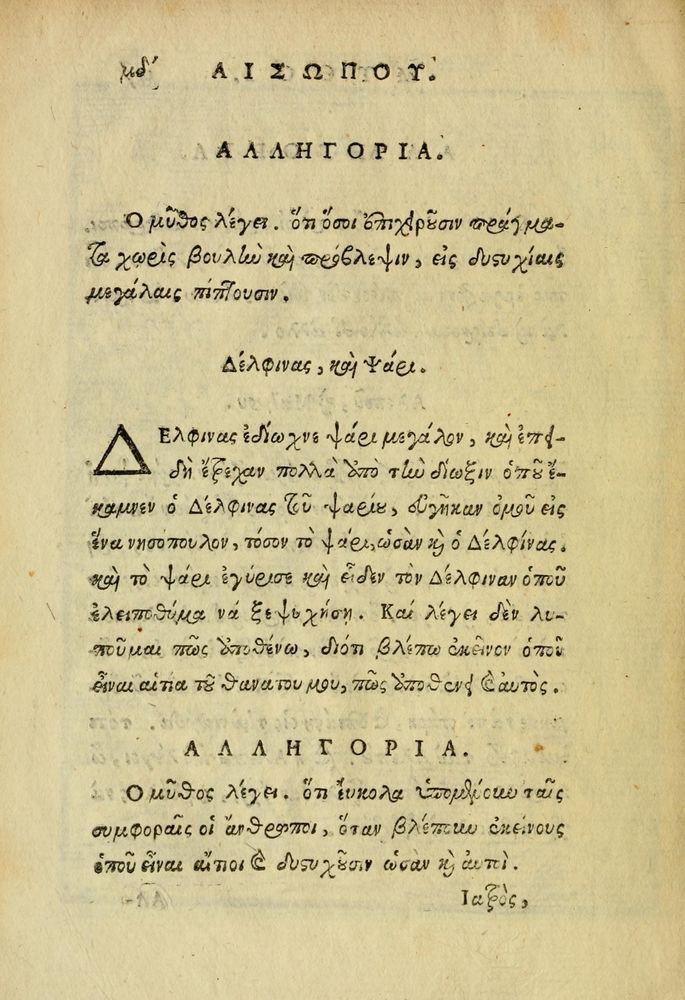 μδʹ ΑΙΣΩΠΟΥ.
ΑΛΛΗΓΟΡΙΑ.
Ὁ μῦθος λέγει. ὅτι ὅσοι ἐπιχειροῦσιν πράγμα-
τα χωρὶς βουλὴν καὶ πρόβλεψιν, εἰς δυστυχίαις
μεγάλαις πίπτουσιν.
Δέλφινας, καὶ Ψάρι.
ΔΕΛΦινας ἐδίωχνε ψάρι μεγάλον, καὶ ἐπει-
δὴ ἔτρεχαν πολλὰ ὑπὸ τὴν δίωξιν ὁποῦ ἔ-
καμνεν ὁ Δέλφινας τοῦ ψαρίου, εὐγῆκαν ὁμοῦ εἰς
ἕνα νησόπουλον, τόσον τὸ ψάρι, ὡσὰν καὶ ὁ Δελφίνας.
καὶ τὸ ψάρι ἐγύρισε καὶ εἶδεν τὸν Δέλφιναν ὁποῦ
ἐλειποθύμα νά ξεψυχήση. Καί λέγει δὲν λυ-
ποῦμαι πῶς ὑποθένω, διότι βλέπω ἐκεῖνον ὁποῦ
εἶναι αἰτία τοῦ θανατου μου, πῶς ὑποθενει καὶ αὐτὸς.
ΑΛΛΗΓΟΡΙΑ.
Ὁ μῦθος λέγει. ὅτι ἔυκολα ὑπομένουν ταῖς
συμφοραῖς οἱ ἄνθρωποι, ὅταν βλέπουν ἐκείνους
ὁποῦ εἶναι αἴτιοι καὶ δυστυχοῦσιν ὡσὰν καὶ αὐτοὶ.
Ιατρὸς,